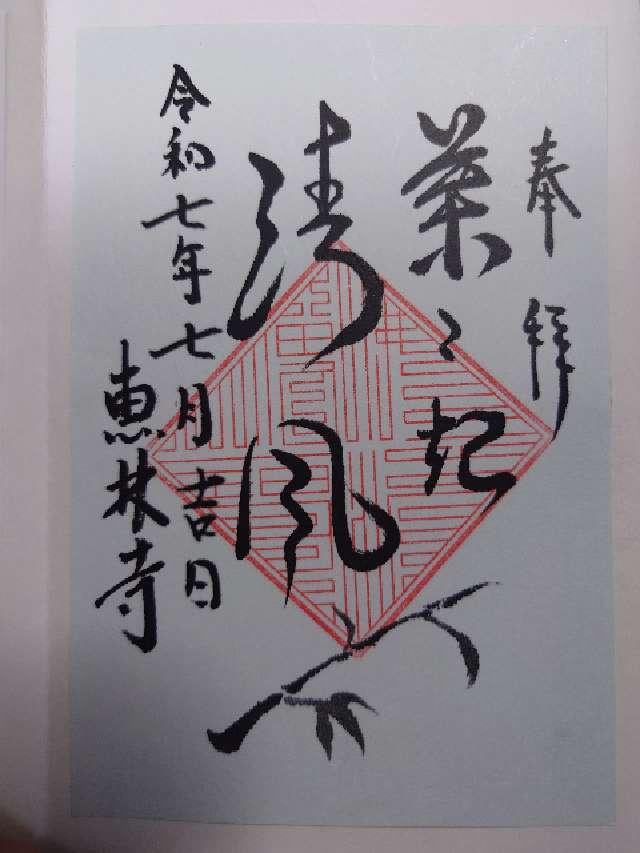 奉拝
葉々起
清風
令和七年七月吉日
恵林寺